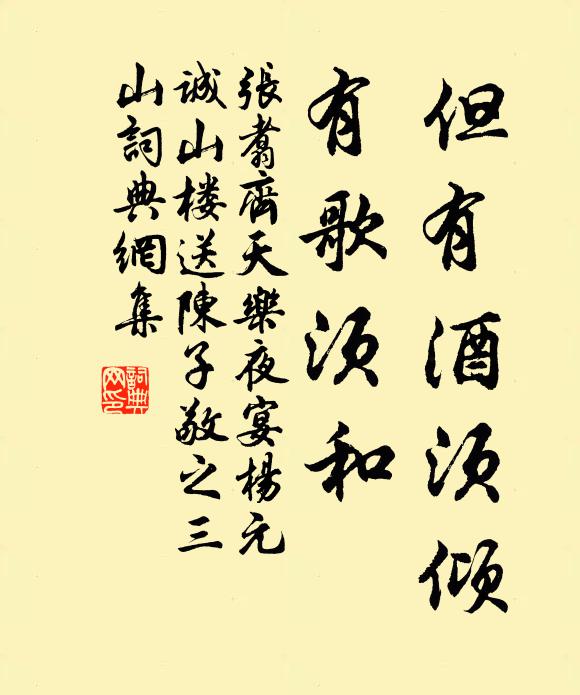 但有酒须倾
有歌须和
張翥齊天樂夜宴楊元
诚山楼送陳子敬之三
山詞典網集
詞典網印